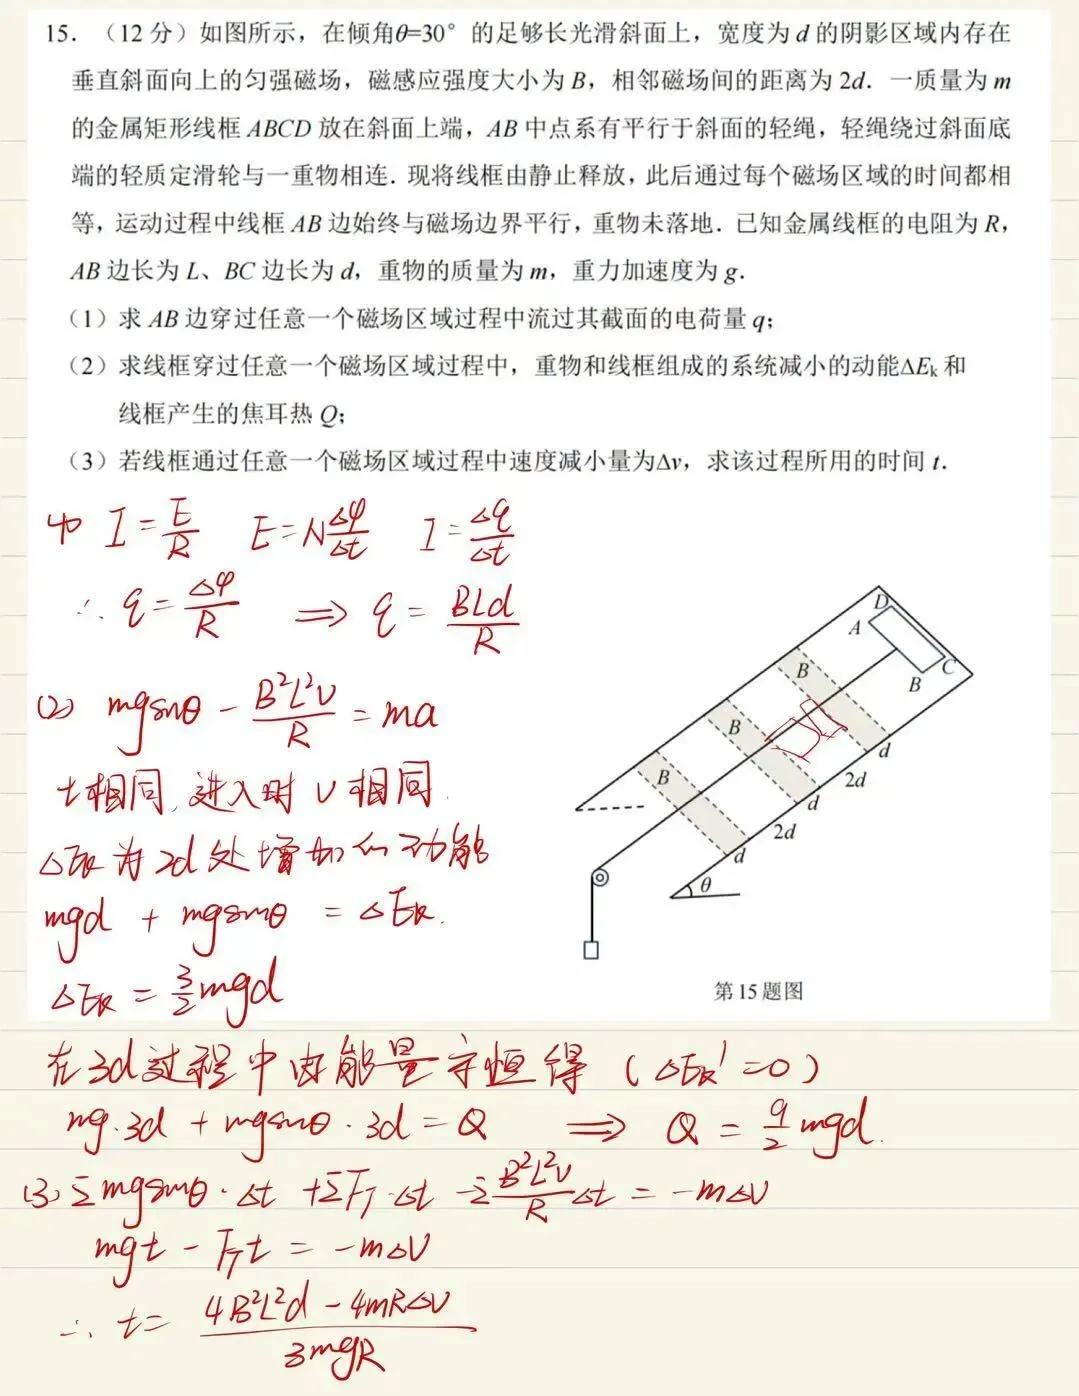 15．（12 分）如图所示，在倾角θ=30° 的足够长光滑斜面上，宽度为 d 的阴影区域内存在
垂直斜面向上的匀强磁场，磁感应强度大小为 B，相邻磁场间的距离为 2d．一质量为 m
的金属矩形线框 ABCD 放在斜面上端，AB 中点系有平行于斜面的轻绳，轻绳绕过斜面底
端的轻质定滑轮与一重物相连．现将线框由静止释放，此后通过每个磁场区域的时间都相
等，运动过程中线框 AB 边始终与磁场边界平行，重物未落地．已知金属线框的电阻为 R，
AB 边长为 L、BC 边长为 d，重物的质量为 m，重力加速度为 g．
（1）求 AB 边穿过任意一个磁场区域过程中流过其截面的电荷量 q；
（2）求线框穿过任意一个磁场区域过程中，重物和线框组成的系统减小的动能ΔEk 和
线框产生的焦耳热 Q；
（3）若线框通过任意一个磁场区域过程中速度减小量为Δv，求该过程所用的时间 t．
(1) I = E/R  E = N Δφ/Δt  I = Δq/Δt
∴ q = Δφ/R ⟹ q = BLd/R
(2) mgsinθ − B²L²v/R = ma
t相同，进入时 v 相同．
ΔEk 为 2d 处增加的动能
mgd + mgsinθ = ΔEk．
ΔEk = 3/2 mgd
D
A
C
B
B
B
B
d
2d
d
2d
d
θ
第15题图
在3d过程中由能量守恒得（ΔEk′=0）
mg·3d + mgsinθ·3d = Q ⟹ Q = 9/2 mgd．
(3) Σmgsinθ·Δt + ΣF_T·Δt − Σ B²L²v/R Δt = −mΔv
mgt − F_T t = −mΔv
∴ t = (4B²L²d − 4mRΔv)/3mgR